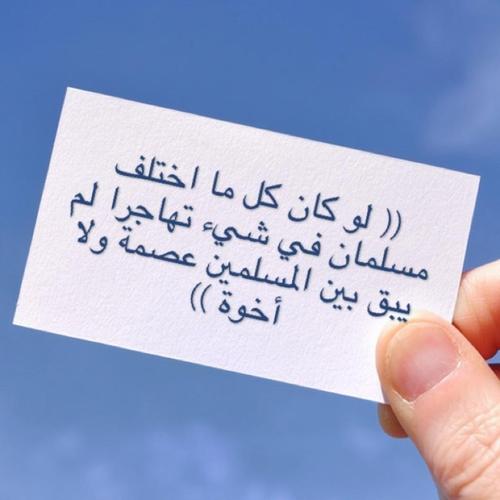 (( لو كان كل ما اختلف
مسلمان في شيء تهاجرا لم
يبق بين المسلمين عصمة ولا
أخوة ))